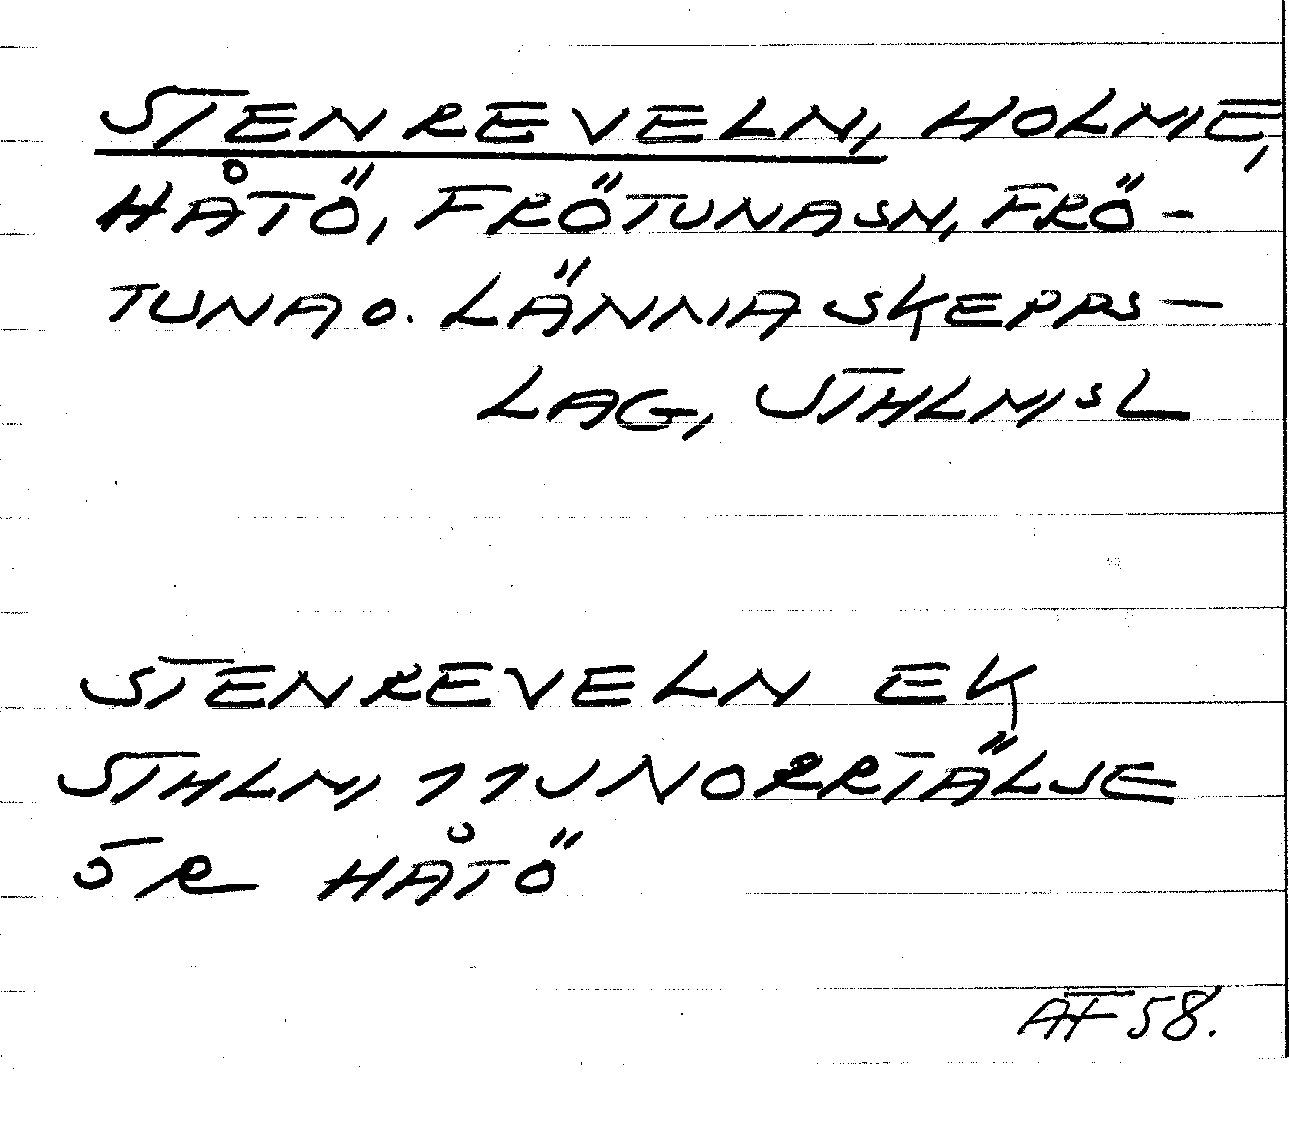 STENREVELN, HOLME,
HÅTÖ, FRÖTUNA SN, FRÖ-
TUNA O. LÄNNA SKEPPS-
LAG, STHLMS L
STENREVELN EK
STHLM 11J NORRTÄLJE
5R HÅTÖ
AF 58.